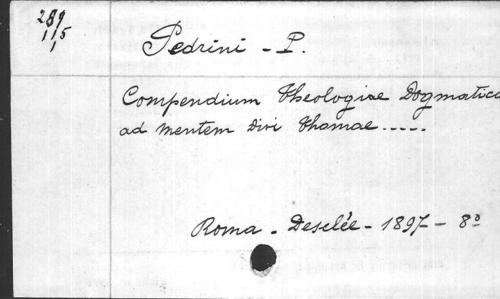 289
1,15
Pedrini - P.
Compendium Theologiae Dogmatica
ad mentem Divi Thomae.....
Roma - Desclée - 1897 - 8º